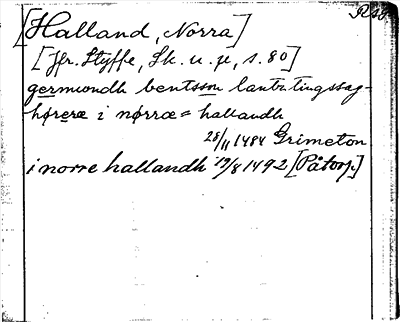 [Halland, Norra]
[Jfr. Styffe, Sk. u. µ, s. 80]
germundh bentsson lantz tingssag-
hørere i nørræ= hallandh
28/11 1484 Grimeton
i norre hallandh 19/8 1492 [Påtorp.]